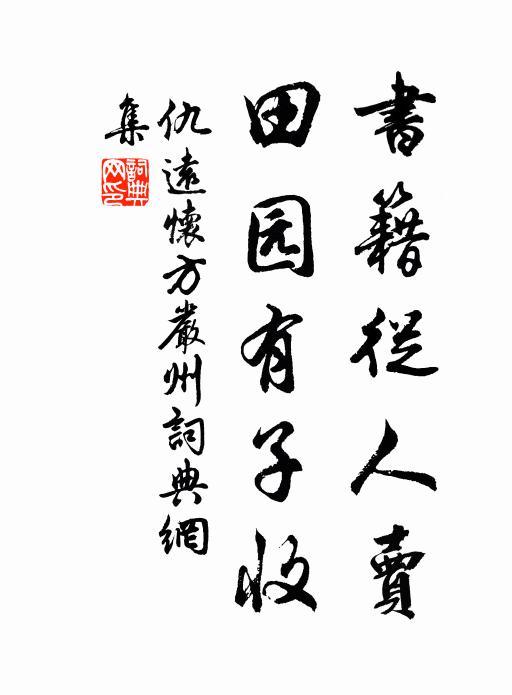 書籍從人賣
田园有子收
仇遠懷方嚴州詞典網
集
詞典
网印